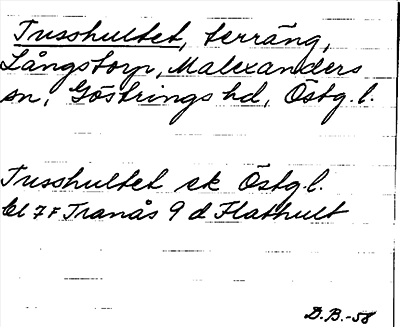 Tusshultet, terräng,
Långstorp, Malexanders
sn, Göstrings hd, Östg. l.
Tusshultet ek Östg. l.
bl 7 F Tranås 9 d Flathult
D.B.-58